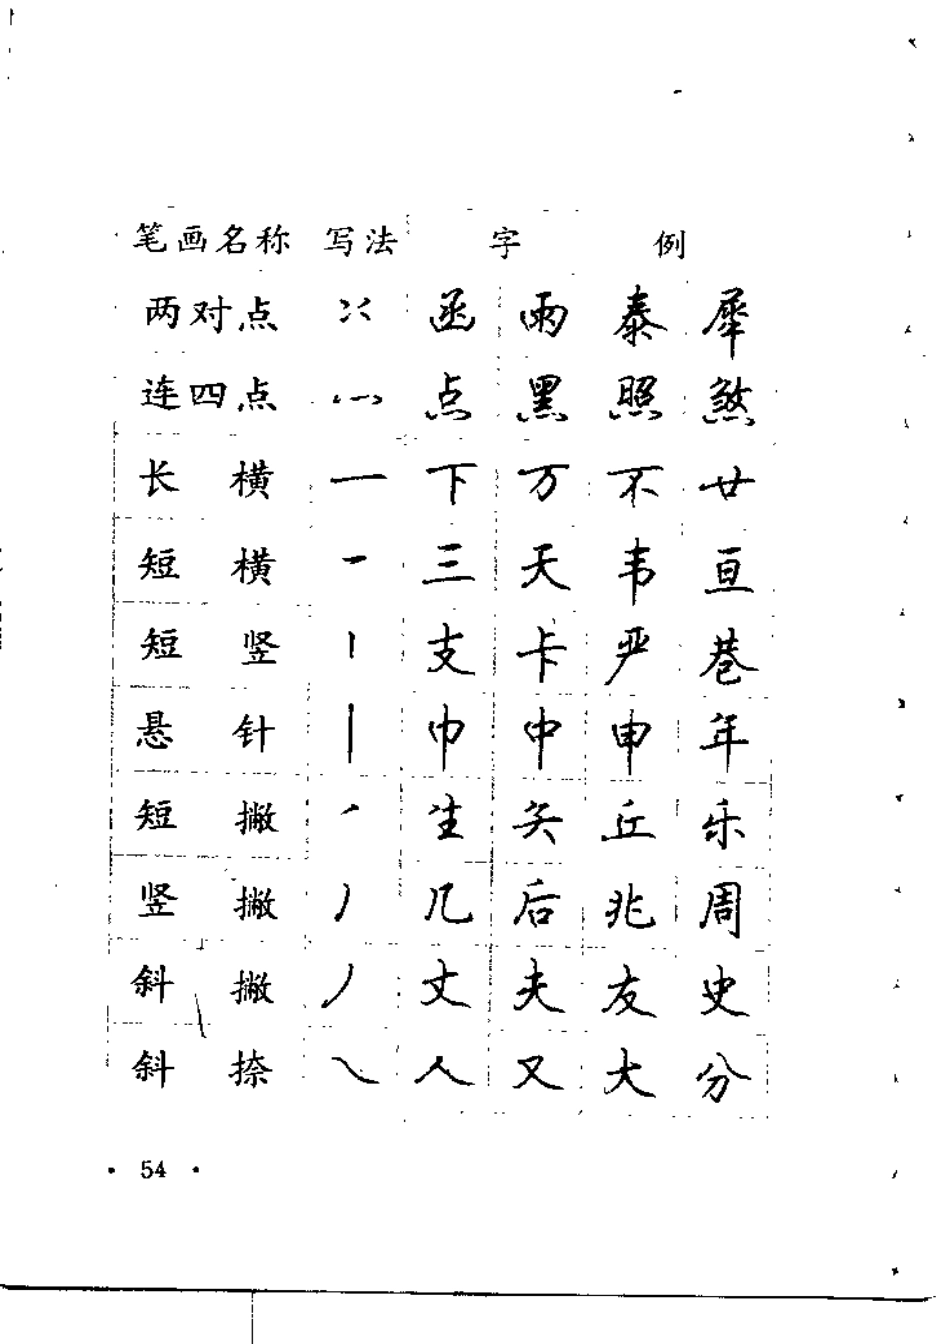 笔画名称 写法 字 例
两对点 函 雨 泰 犀
连四点 灬 点 黑 照 煞
长横 一 下 万 不 廿
短横 一 三 天 韦 亘
短竖 丨 支 卡 严 巷
悬针 丨 巾 中 申 年
短撇 丿 生 矢 丘 乐
竖撇 丿 几 后 兆 周
斜撇 丿 丈 夫 友 史
斜捺 ㇏ 人 又 大 分
· 54 ·